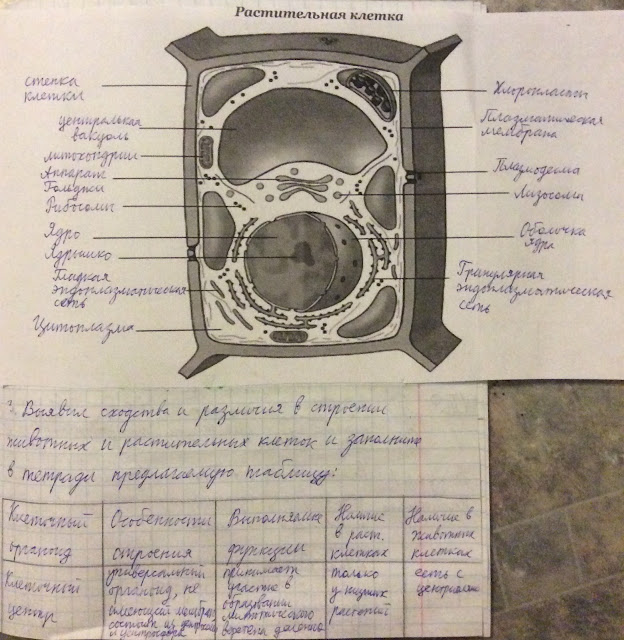 Растительная клетка
стенка
клетки
центральная
вакуоль
митохондрии
Аппарат
Гольджи
Рибосомы
Ядро
Ядрышко
Гладкая
эндоплазматическая
сеть
Цитоплазма
Хлоропласты
Плазматическая
мембрана
Плазмодесма
Лизосомы
Оболочка
ядра
Гранулярная
эндоплазматическая
сеть
Выявил сходства и различия в строении
животных и растительных клеток и заполните
в тетради предлагаемую таблицу:
Клеточный
органоид
Особенности
строения
Выполняемые
функции
Наличие
в раст.
клетках
Наличие в
животных
клетках
Клеточный
центр
универсальный
органоид, не
имеющий
состоит из
и центросфера
принимает
участие в
образовании
митотического
веретена деления
только
у низших
растений
есть с